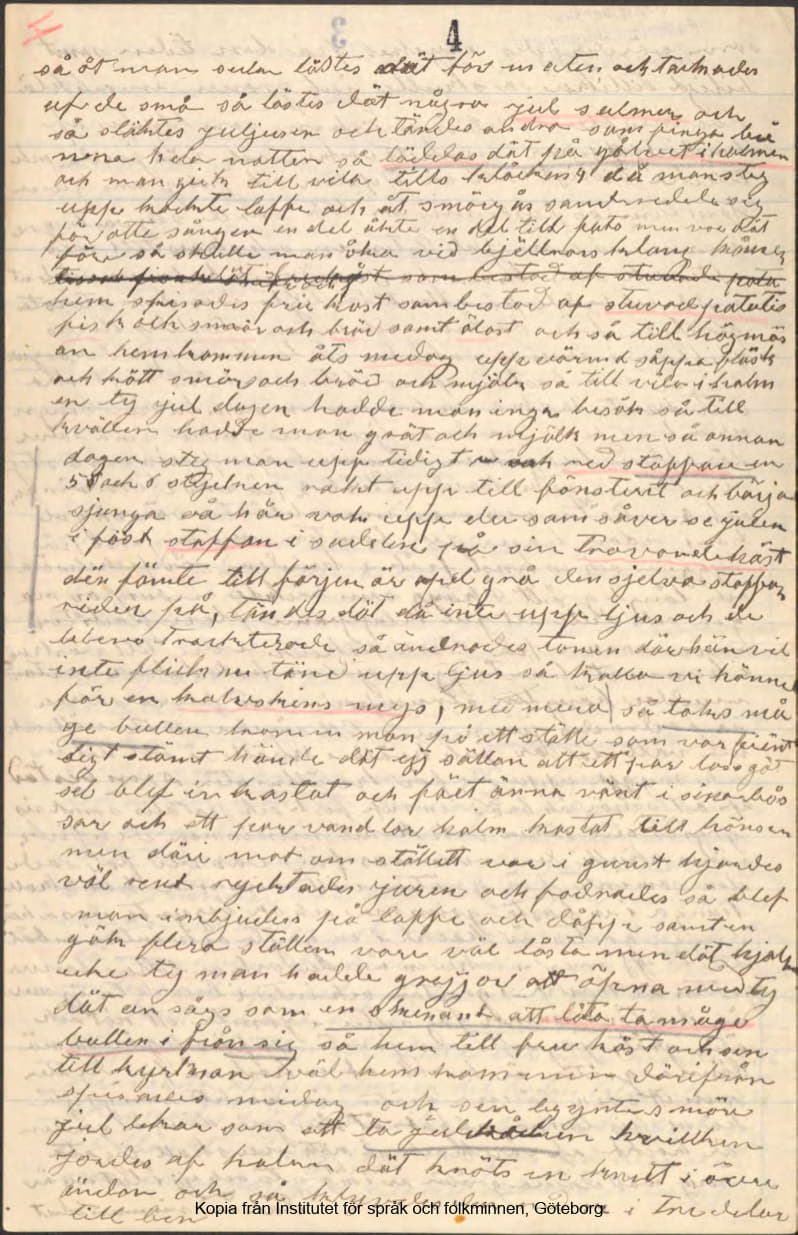 4
så åt man sedan lästes dät för maten och tackades
af de små så lästes dät några jul salmer och
så släktes juljusen och tändes andra som finga bri
nna hela natten så läddas dät på gålvet i halmen
och man gick till vila tills klåckan 4 då man steg
upp kokte kaffe och åt smörgås samt redde sig
för otte sången en del åkte en del till fots men var dät
före så skulle man åka vid bjällrors klang
hem spisades fru kost som bestod af stuvad patatis
fisk och smör och brö samt ålost och så till högmäs
an hemkommen åts medag uppvärmd såppa fläsk
och kött smör och bröd och mjölk så till vila i halm
en ty jul dagen hadde man inga besök så till
kvällen hadde man gröt och mjölk men så annan
dagen steg man upp tidigt med staffan en
5 och 6 stycken rakt upp till fönstret och börja
sjunga så här vak upp du som såver se julen
i föst staffan i sadelen på sin Travande häst
dän fämte till färjen är apel grå den sjelva staffan
rider på, tändes dät då inte upp ljus och de
blevo Trackterade så ändrades tonen där hän vil
inte flickan tänd upp ljus så kalla vi hänne
för en kalvskins mys, med mera så toks må
ge bullen kom man på ett ställe som var fient
ligt stämt hände dät ej sällan att ett par lass göt
sel blef in kastat och fäet änna växt i sina bås
sar och ett par vandlar halm kastat till hönsen
men däri mot om stället var i gunst hjordes
väl rent ryktades juren och fodrades så blef
man inbjuden på kaffe och dåpp samt en
gök flera ställen vore väl låsta men dät hjalp
icke ty man hadde grejjor att öpna med ty
dät an sågs som en skam att låta ta måge
bullen i från sig så hem till fru kåst och sen
till kyrkan väl hem kommen därifrån
spisades midag och sen begyntes möre
jul lekar som att ta julbocken hvilken
jordes af halm dät knöts en knutt i övre
ändan och så i Tre delar
till ben
Kopia från Institutet för språk och folkminnen, Göteborg